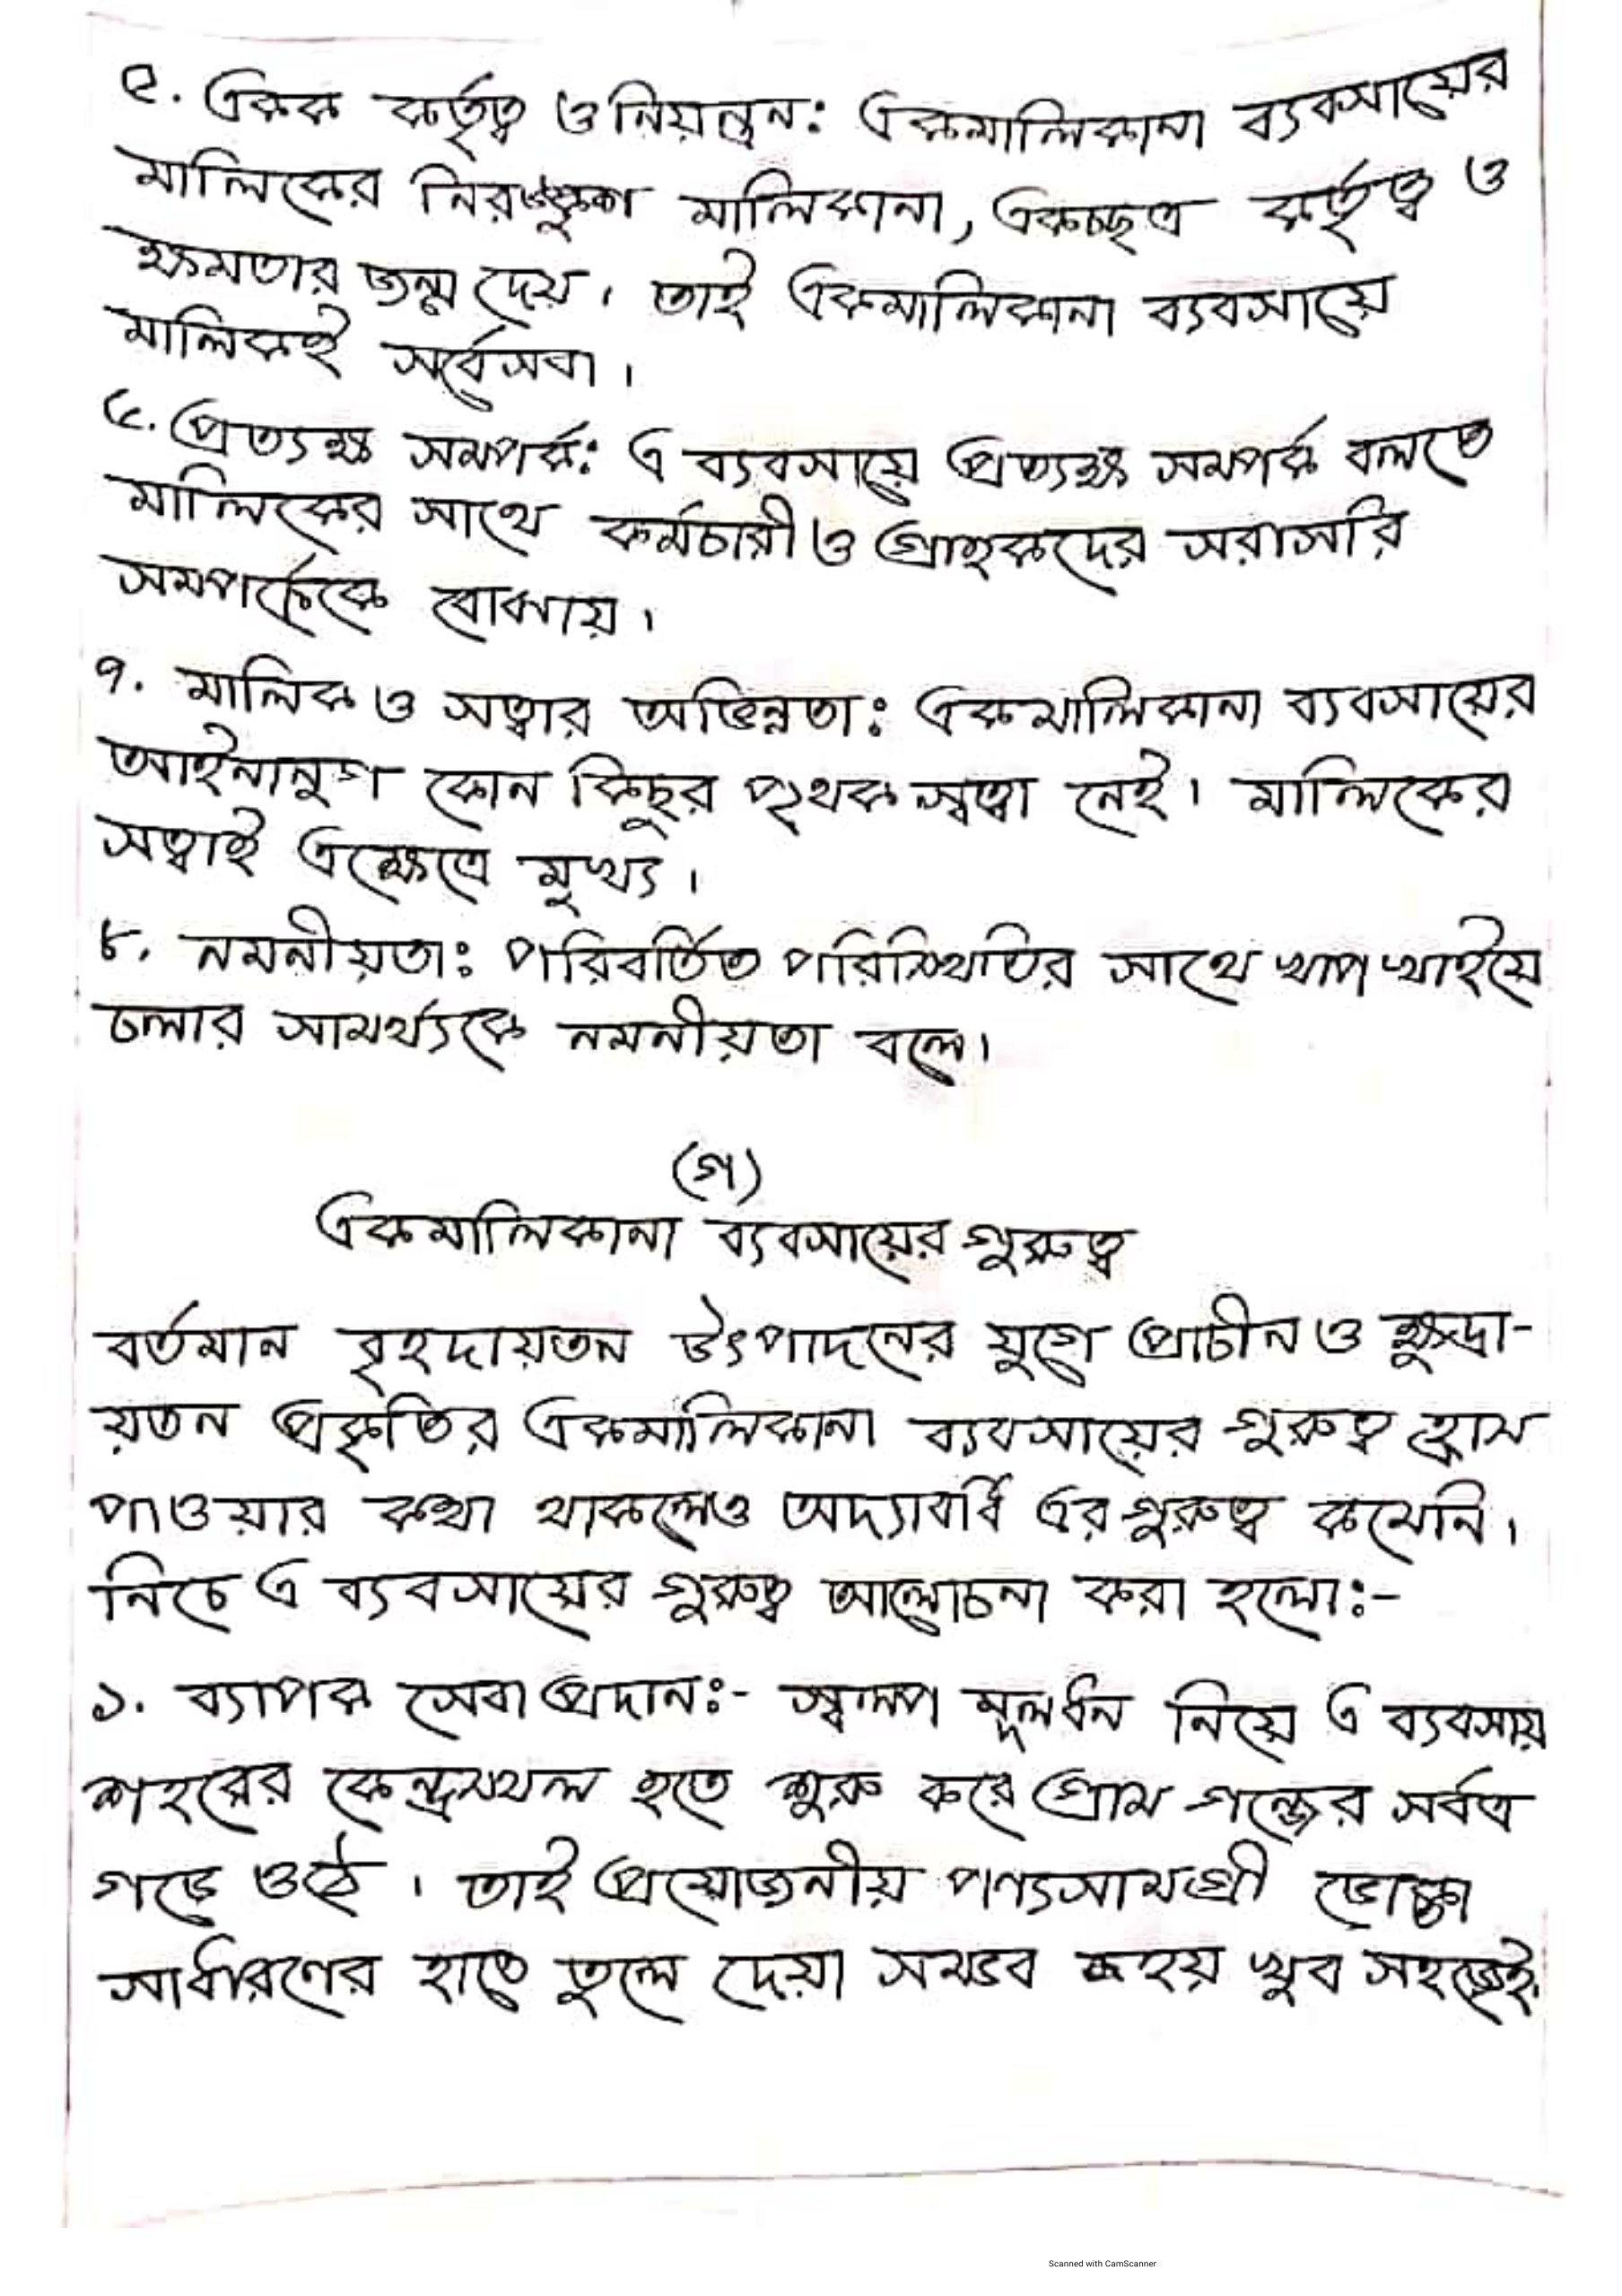 ৫. একক কর্তৃত্ব ও নিয়ন্ত্রন: একমালিকানা ব্যবসায়ের
মালিকের নিরঙ্কুশ মালিকানা, একচ্ছত্র কর্তৃত্ব ও
ক্ষমতার জন্ম দেয়। তাই একমালিকানা ব্যবসায়ে
মালিকই সর্বেসবা।
৬. প্রত্যক্ষ সম্পর্ক: এ ব্যবসায়ে প্রত্যক্ষ সম্পর্ক বলতে
মালিকের সাথে কর্মচারী ও গ্রাহকদের সরাসরি
সম্পর্ককে বোঝায়।
৭. মালিক ও সত্বার অভিন্নতা: একমালিকানা ব্যবসায়ের
আইনানুগ কোন কিছুর পৃথক স্বত্বা নেই। মালিকের
সত্বাই এক্ষেত্রে মুখ্য।
৮. নমনীয়তা: পরিবর্তিত পরিস্থিতির সাথে খাপ খাইয়ে
চলার সামর্থ্যকে নমনীয়তা বলে।
(গ)
একমালিকানা ব্যবসায়ের গুরুত্ব
বর্তমান বৃহদায়তন উৎপাদনের যুগে প্রাচীন ও ক্ষুদ্রা-
য়তন প্রকৃতির একমালিকানা ব্যবসায়ের গুরুত্ব হ্রাস
পাওয়ার কথা থাকলেও অদ্যাবধি এর গুরুত্ব কমেনি।
নিচে এ ব্যবসায়ের গুরুত্ব আলোচনা করা হলো:-
১. ব্যাপক সেবা প্রদান:- স্বল্প মূলধন নিয়ে এ ব্যবসায়
শহরের কেন্দ্রস্থল হতে শুরু করে গ্রাম গঞ্জের সর্বত্র
গড়ে ওঠে। তাই প্রয়োজনীয় পণ্যসামগ্রী ভোক্তা
সাধারণের হাতে তুলে দেয়া সম্ভব হয় খুব সহজেই।
Scanned with CamScanner